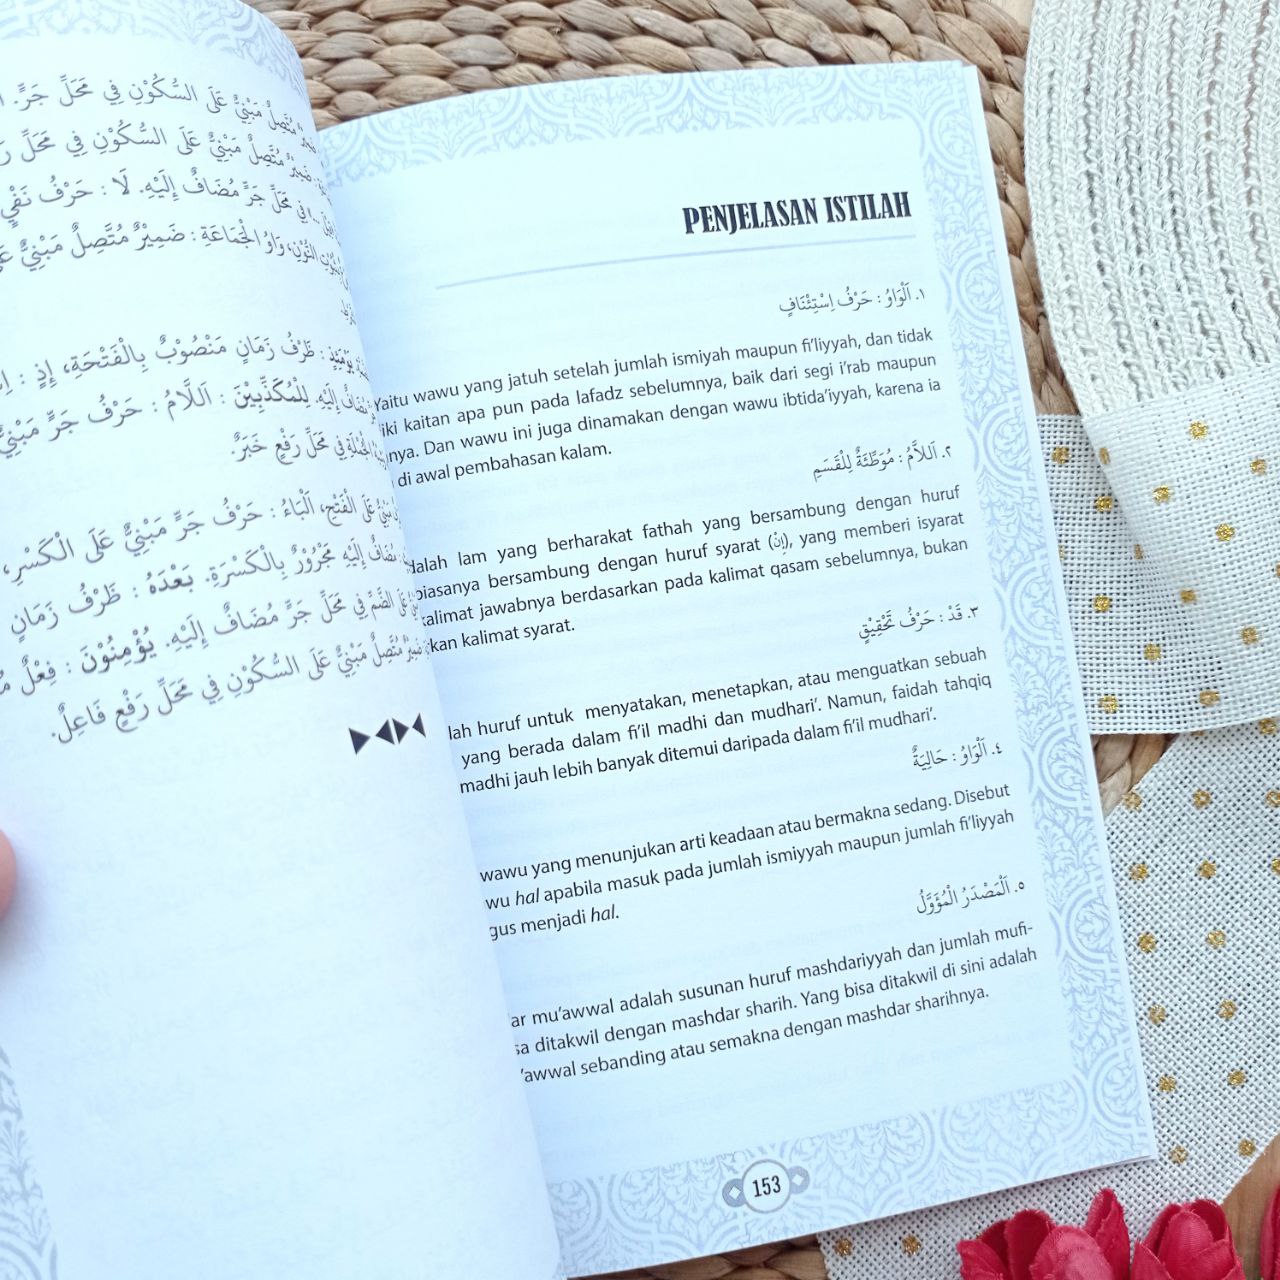 مُتَّصِلٌ مَبْنِيٌّ عَلَى السُّكُوْنِ فِي مَحَلِّ جَرٍّ.
ضَمِيْرٌ مُتَّصِلٌ مَبْنِيٌّ عَلَى السُّكُوْنِ فِي مَحَلِّ
فِي مَحَلِّ جَرٍّ مُضَافٌ إِلَيْهِ. لَا : حَرْفُ نَفْيٍ
النُّوْنِ، وَاوُ الْجَمَاعَةِ : ضَمِيْرٌ مُتَّصِلٌ مَبْنِيٌّ
يَوْمَئِذٍ : ظَرْفُ زَمَانٍ مَنْصُوْبٌ بِالْفَتْحَةِ، إِذٍ :
مُضَافٌ إِلَيْهِ. لِلْمُكَذِّبِيْنَ : اَللَّامُ : حَرْفُ جَرٍّ مَبْنِيٌّ
الْجُمْلَةِ فِي مَحَلِّ رَفْعٍ خَبَرٌ.
مَبْنِيٌّ عَلَى الْفَتْحِ، اَلْبَاءُ : حَرْفُ جَرٍّ مَبْنِيٌّ عَلَى الْكَسْرِ،
مُضَافٌ إِلَيْهِ مَجْرُوْرٌ بِالْكَسْرَةِ. بَعْدَهُ : ظَرْفُ زَمَانٍ
عَلَى الضَّمِّ فِي مَحَلِّ جَرٍّ مُضَافٌ إِلَيْهِ. يُؤْمِنُوْنَ : فِعْلٌ
ضَمِيْرٌ مُتَّصِلٌ مَبْنِيٌّ عَلَى السُّكُوْنِ فِي مَحَلِّ رَفْعٍ فَاعِلٌ.
PENJELASAN ISTILAH
١. اَلْوَاوُ : حَرْفُ اِسْتِئْنَافٍ
Yaitu wawu yang jatuh setelah jumlah ismiyah maupun fi'liyyah, dan tidak
iki kaitan apa pun pada lafadz sebelumnya, baik dari segi i'rab maupun
nya. Dan wawu ini juga dinamakan dengan wawu ibtida'iyyah, karena ia
di awal pembahasan kalam.
٢. اَللاَّمُ : مُوَطِّئَةٌ لِلْقَسَمِ
dalah lam yang berharakat fathah yang bersambung dengan huruf
biasanya bersambung dengan huruf syarat (إِنْ), yang memberi isyarat
kalimat jawabnya berdasarkan pada kalimat qasam sebelumnya, bukan
kan kalimat syarat.
٣. قَدْ : حَرْفُ تَحْقِيْقٍ
lah huruf untuk menyatakan, menetapkan, atau menguatkan sebuah
yang berada dalam fi'il madhi dan mudhari'. Namun, faidah tahqiq
madhi jauh lebih banyak ditemui daripada dalam fi'il mudhari'.
٤. اَلْوَاوُ : حَالِيَةٌ
wawu yang menunjukan arti keadaan atau bermakna sedang. Disebut
wu hal apabila masuk pada jumlah ismiyyah maupun jumlah fi'liyyah
gus menjadi hal.
٥. اَلْمَصْدَرُ الْمُؤَوَّلُ
ar mu'awwal adalah susunan huruf mashdariyyah dan jumlah mufi-
sa ditakwil dengan mashdar sharih. Yang bisa ditakwil di sini adalah
'awwal sebanding atau semakna dengan mashdar sharihnya.
153